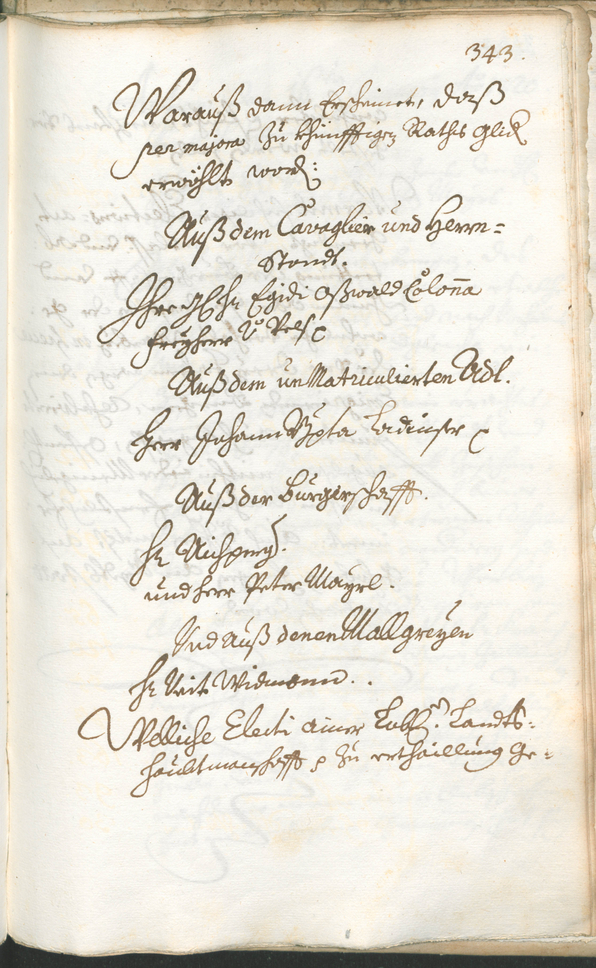 343.
Warauß dann Erscheinet, daß
per majora zu khünfftigen Raths Glid
erwöhlt word:
Auß dem Cavaglier und Herrn=
Standt.
Ihro Egidi Oßwald Colonna
Freyherr v: Vels
Auß dem unMatriculierten Adl.
Herr Johann Ladinser
Auß der Burgerschafft.
H: Aichperg:
und Herr Peter Mayrl.
Und Auß denen Mallgreyen
H: Veit Widmann.
Wölliche Electi ainer Löbl: Landts=
haubtmanschafft p zu erthaillung Ge=